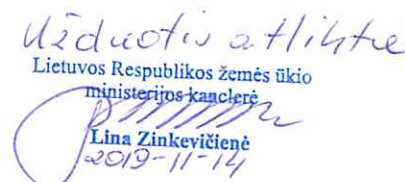 Užduotis atlikta
Lietuvos Respublikos žemės ūkio
ministerijos kanclerė
Lina Zinkevičienė
2019-11-14